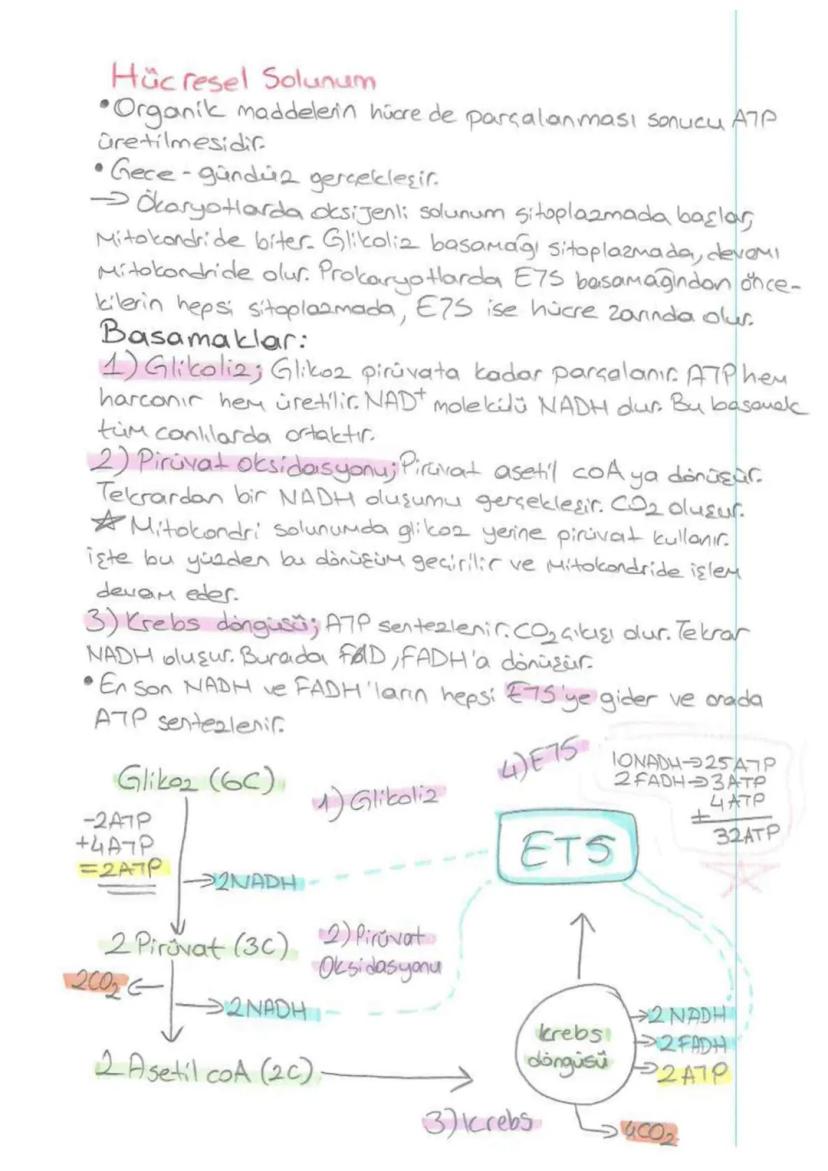 Hücresel Solunum
• Organik maddelerin hücrede parçalanması sonucu ATP
üretilmesidir.
• Gece - gündüz gerçekleşir.
→ Ökaryotlarda oksijenli solunum sitoplazmada başlar,
mitokondride biter. Glikoliz basamağı sitoplazmada, devamı
mitokondride olur. Prokaryotlarda ETS basamağından önce-
kilerin hepsi sitoplazmada, ETS ise hücre zarında olur.
Basamaklar:
1) Glikoliz; Glikoz pirüvata kadar parçalanır. ATP hem
harcanır hem üretilir. NAD+ molekülü NADH olur. Bu basamak
tüm canlılarda ortaktır.
2) Pirüvat oksidasyonu; Pirüvat asetil coA ya dönüşür.
Tekrardan bir NADH oluşumu gerçekleşir. CO2 oluşur.
☆ Mitokondri solunumda glikoz yerine pirüvat kullanır.
işte bu yüzden bu dönüşüm geçirilir ve mitokondride işlem
devam eder.
3) Krebs döngüsü; ATP sentezlenir. CO2 çıkışı olur. Tekrar
NADH oluşur. Burada FAD, FADH'a dönüşür.
• En son NADH ve FADH'ların hepsi ETS'ye gider ve orada
ATP sentezlenir.
Glikoz (6C)
1) Glikoliz
-2ATP
+4ATP
=2ATP
→2NADH
2 Pirüvat (3C)
2) Pirüvat
Oksidasyonu
2CO2
→2NADH
2 Asetil coA (2C)
3) Krebs
4) ETS
10NADH→25ATP
2FADH→3ATP
4ATP
+
32ATP
ETS
krebs
döngüsü
→2NADH
→2FADH
→2ATP
4CO2